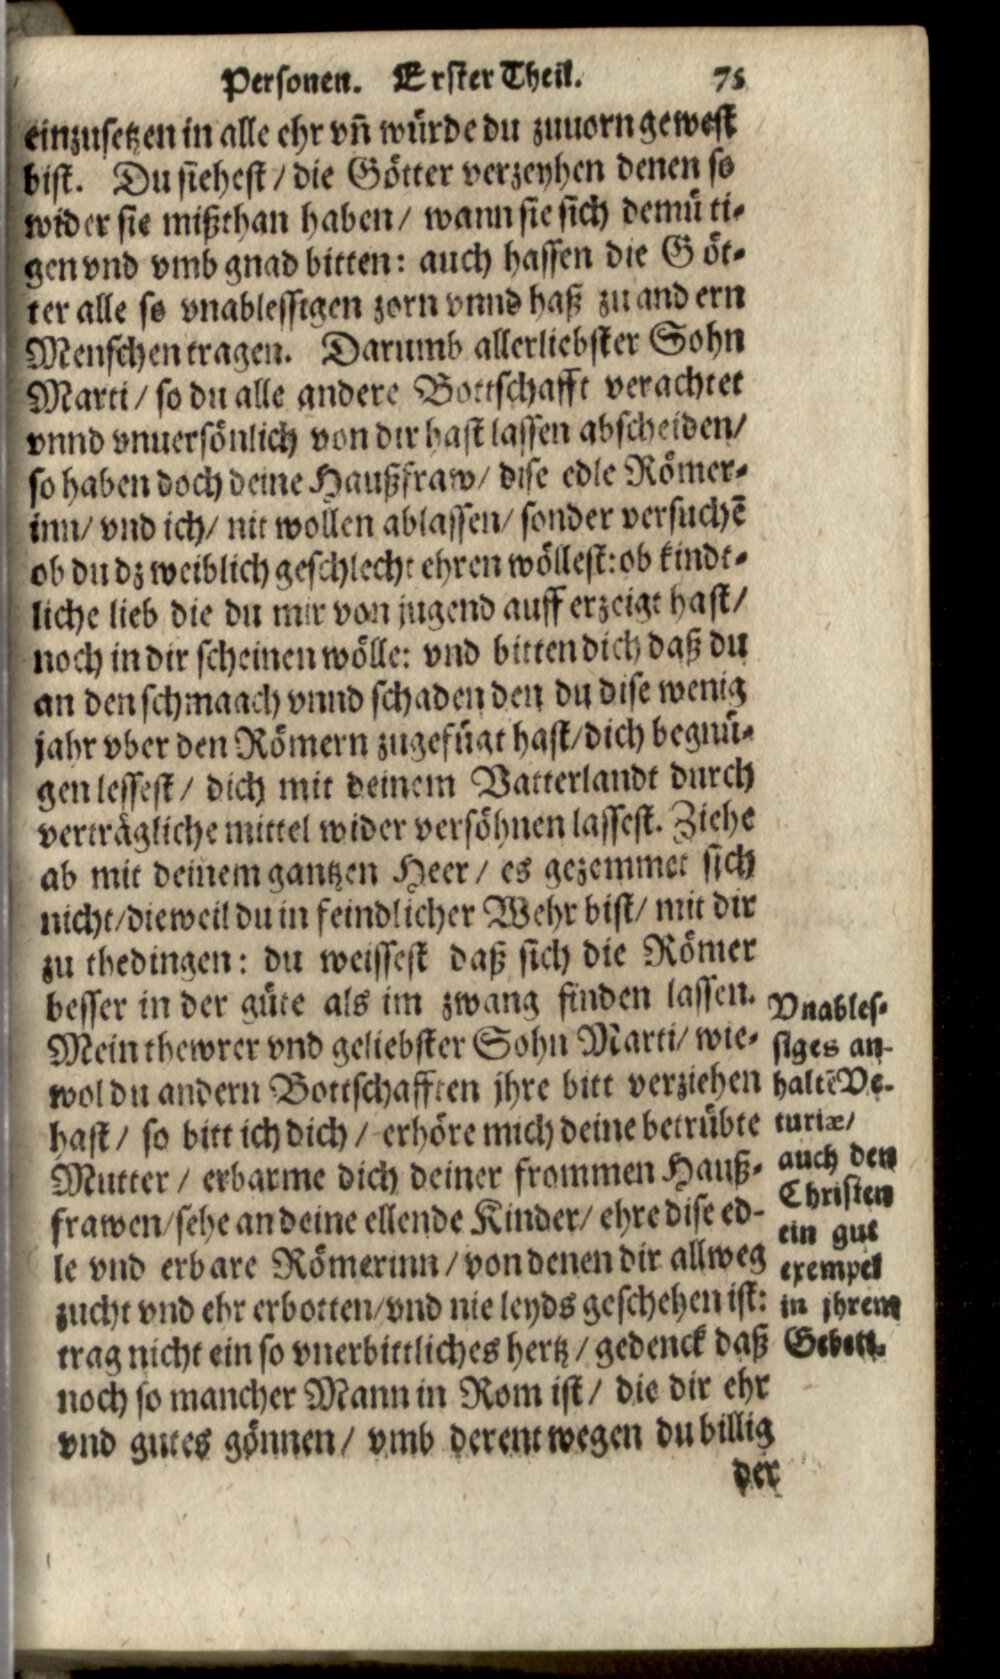 Personen. Erster Theil. 75
einzusetzen in alle ehr vñ würde du zuuorn gewest
bist. Du siehest / die Götter verzeyhen denen so
wider sie mißthan haben / wann sie sich demüti-
gen vnd vmb gnad bitten: auch hassen die Göt-
ter alle so vnablessigen zorn vnnd haß zu andern
Menschen tragen. Darumb allerliebster Sohn
Marti / so du alle andere Bottschafft verachtet
vnnd vnuersönlich von dir hast lassen abscheiden /
so haben doch deine Haußfraw / dise edle Römer-
inn / vnd ich / nit wollen ablassen / sonder versuchē
ob du dz weiblich geschlecht ehren wöllest: ob kindt-
liche lieb die du mir von jugend auff erzeigt hast /
noch in dir scheinen wölle: vnd bitten dich daß du
an den schmaach vnnd schaden den du dise wenig
jahr vber den Römern zugefügt hast / dich begnü-
gen lessest / dich mit deinem Vatterlandt durch
verträgliche mittel wider versöhnen lassest. Ziehe
ab mit deinem gantzen Heer / es gezemmet sich
nicht / dieweil du in feindlicher Wehr bist / mit dir
zu thedingen: du weissest daß sich die Römer
besser in der güte als im zwang finden lassen.
Mein thewrer vnd geliebster Sohn Marti / wie-
wol du andern Bottschafften jhre bitt verziehen
hast / so bitt ich dich / erhöre mich deine betrübte
Mutter / erbarme dich deiner frommen Hauß-
frawen / sehe an deine ellende Kinder / ehre dise ed-
le vnd erbare Römerinn / von denen dir allweg
zucht vnd ehr erbotten / vnd nie leyds geschehen ist:
trag nicht ein so vnerbittliches hertz / gedenck daß
noch so mancher Mann in Rom ist / die dir ehr
vnd gutes gönnen / vmb derent wegen du billig
der
Vnables-
siges an-
haltē Ve-
turiæ /
auch den
Christen
ein gut
exempel
in jhrem
Gebett.